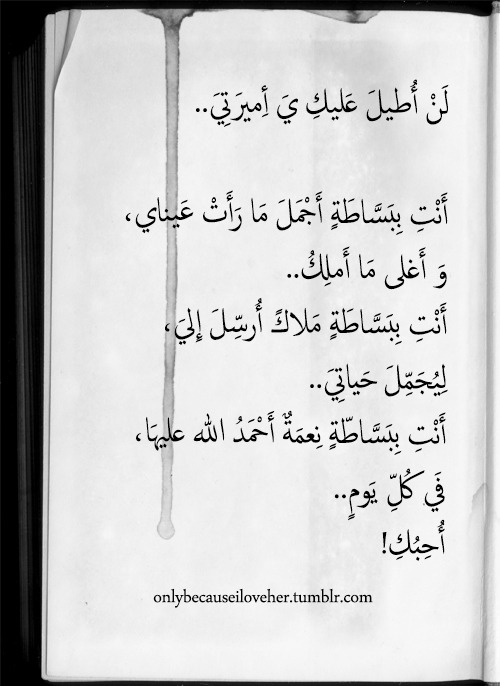 لَنْ أُطيلَ عَليكِ يَ أِميرَتِيَ..
أَنْتِ بِبَسَّاطَةٍ أَجْمَلَ مَا رَأَتْ عَيناي،
وَ أَغلى مَا أَملِكُ..
أَنْتِ بِبَسَّاطَةٍ مَلاكً أُرسِّلَ إِليَ،
لِيُجَمِّلَ حَياتِيَ..
أَنْتِ بِبَسَّاطّةٍ نِعمَةٌ أَحْمَدُ الله عليهَا،
فَي كُلِّ يَومٍ..
أُحِبُكِ!
onlybecauseiloveher.tumblr.com